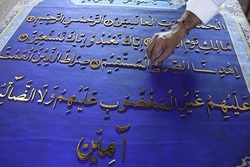 الحمد لله رب العالمين الرحمن الرحيم
مالك يوم الدين إياك نعبد وإياك نستعين
اهدنا الصراط المستقيم صراط الذين أنعمت
عليهم غير المغضوب عليهم ولا الضالين
آمين